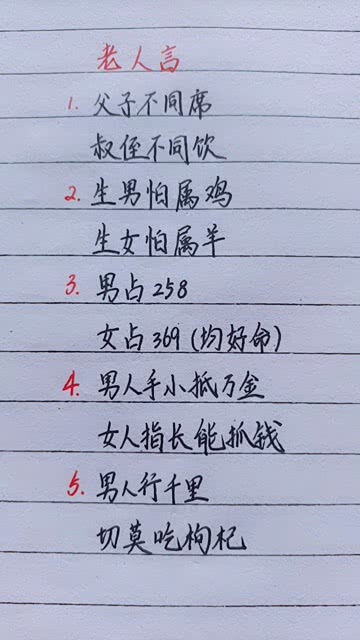 老人言
1. 父子不同席
叔侄不同饮
2. 生男怕属鸡
生女怕属羊
3. 男占258
女占369(均好命)
4. 男人手小抵万金
女人指长能抓钱
5. 男人行千里
切莫吃枸杞